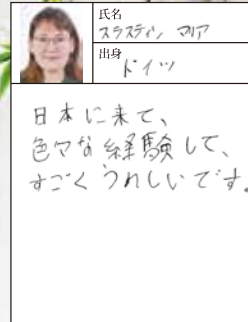 氏名
スラスティン マリア
出身
ドイツ
日本に来て、
色々な経験して、
すごくうれしいです。